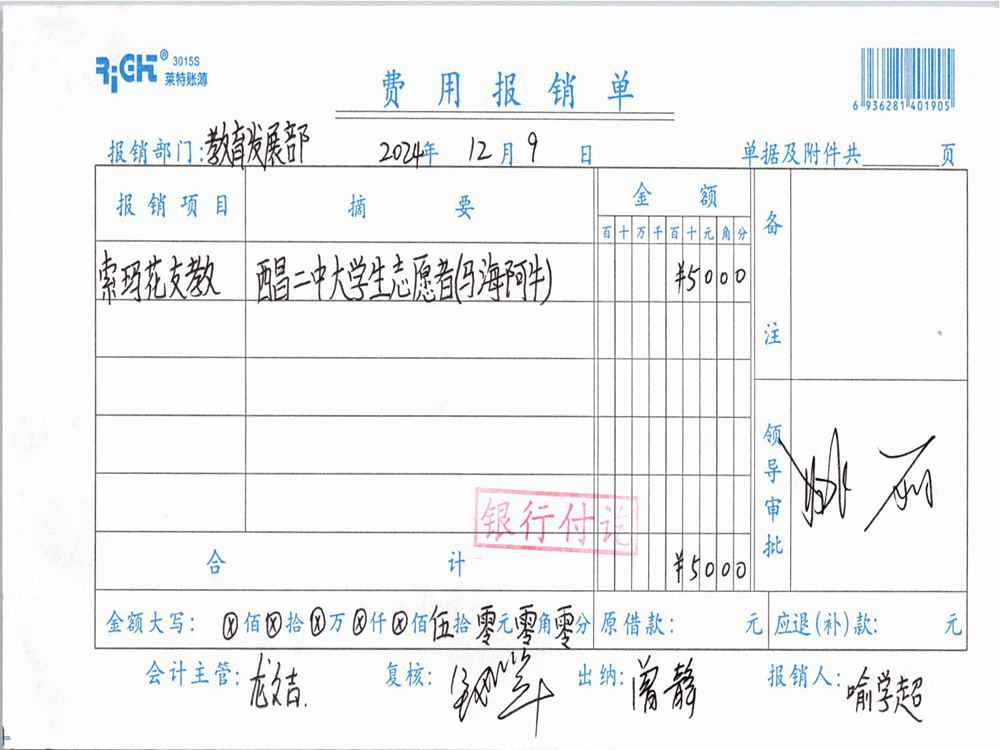 RiGHT® 3015S
莱特账簿
费用报销单
6 936281 401905
报销部门:教育发展部 2024年 12月9日 单据及附件共 页
报销项目 摘要 金额 备注
百十万千百十元角分
索玛花支教 西昌二中大学生志愿者(马海阿牛) ¥5000
领导审批
银行付讫
合计 ¥5000
金额大写: ⊗佰⊗拾⊗万⊗仟⊗佰伍拾零元零角零分 原借款: 元 应退(补)款: 元
会计主管: 龙文吉 复核: 出纳: 曾静 报销人: 喻学超